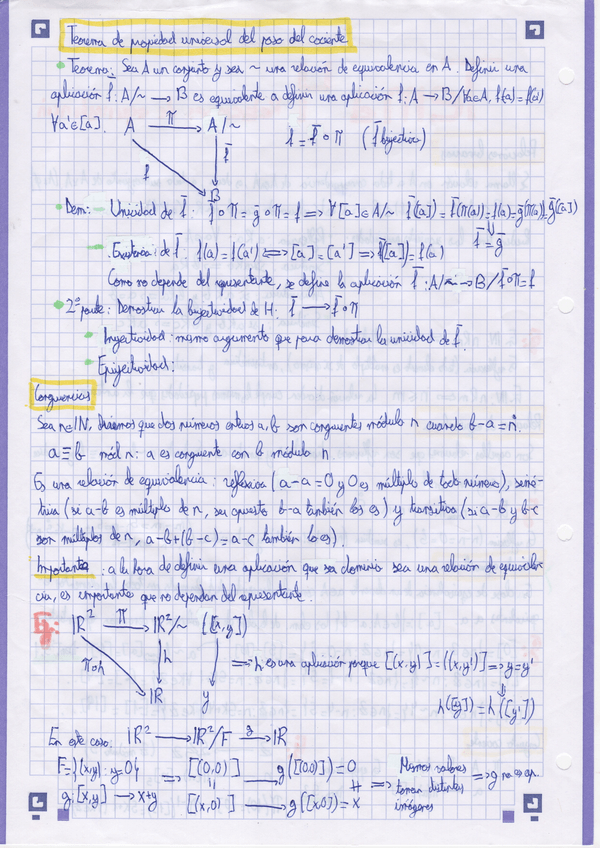 Teorema de propiedad universal del paso del cociente
Teorema: Sea A un conjunto y sea ~ una relación de equivalencia en A. Definir una
aplicación f̄: A/~ → B es equivalente a definir una aplicación f: A → B / ∀a∈A, f(a) = f(a')
∀a'∈[a].
A π→ A/~
f = f̄∘π (f̄ bijectiva)
f f̄
B
Dem: Unicidad de f̄: f̄∘π = ḡ∘π = f ⟹ ∀[a]∈A/~ f̄([a]) = f̄(π(a)) = f(a) = ḡ(π(a)) = ḡ([a])
⇓
f̄ = ḡ
Existencia de f̄: f(a) = f(a') ⟺ [a] = [a'] ⟹ f̄([a]) = f(a)
Como no depende del representante, se define la aplicación f̄: A/~ → B / f̄∘π = f
2ª parte: Demostrar la biyectividad de H: f̄ → f̄∘π
Inyectividad: mismo argumento que para demostrar la unicidad de f̄.
Epiyectividad:
Congruencias
Sea n∈IN, diremos que dos números enteros a, b son congruentes módulo n cuando b-a = ṅ
a ≡ b mód n: a es congruente con b módulo n
Es una relación de equivalencia: reflexiva (a-a = 0 y 0 es múltiplo de todo número), simé-
trica (si a-b es múltiplo de n, su opuesto b-a también lo es) y transitiva (si a-b y b-c
son múltiplos de n, a-b+(b-c) = a-c también lo es).
Importante: a la hora de definir una aplicación que su dominio sea una relación de equivalen-
cia, es importante que no dependan del representante.
Ej: IR² π→ IR²/~ ([x,y])
π∘h h ⟹ h es una aplicación porque [(x,y)] = [(x,y')] ⟹ y = y'
⇓
IR y h([y]) = h([y'])
En este caso: IR² → IR²/F g→ IR
F = {(x,y): y=0} ⟹ [(0,0)] → g([(0,0)]) = 0 Mismos valores
|| ≠ ⟹ toman distintas ⟹ g no es ap.
g: [x,y] → x+y [(x,0)] → g([(x,0)]) = x imágenes